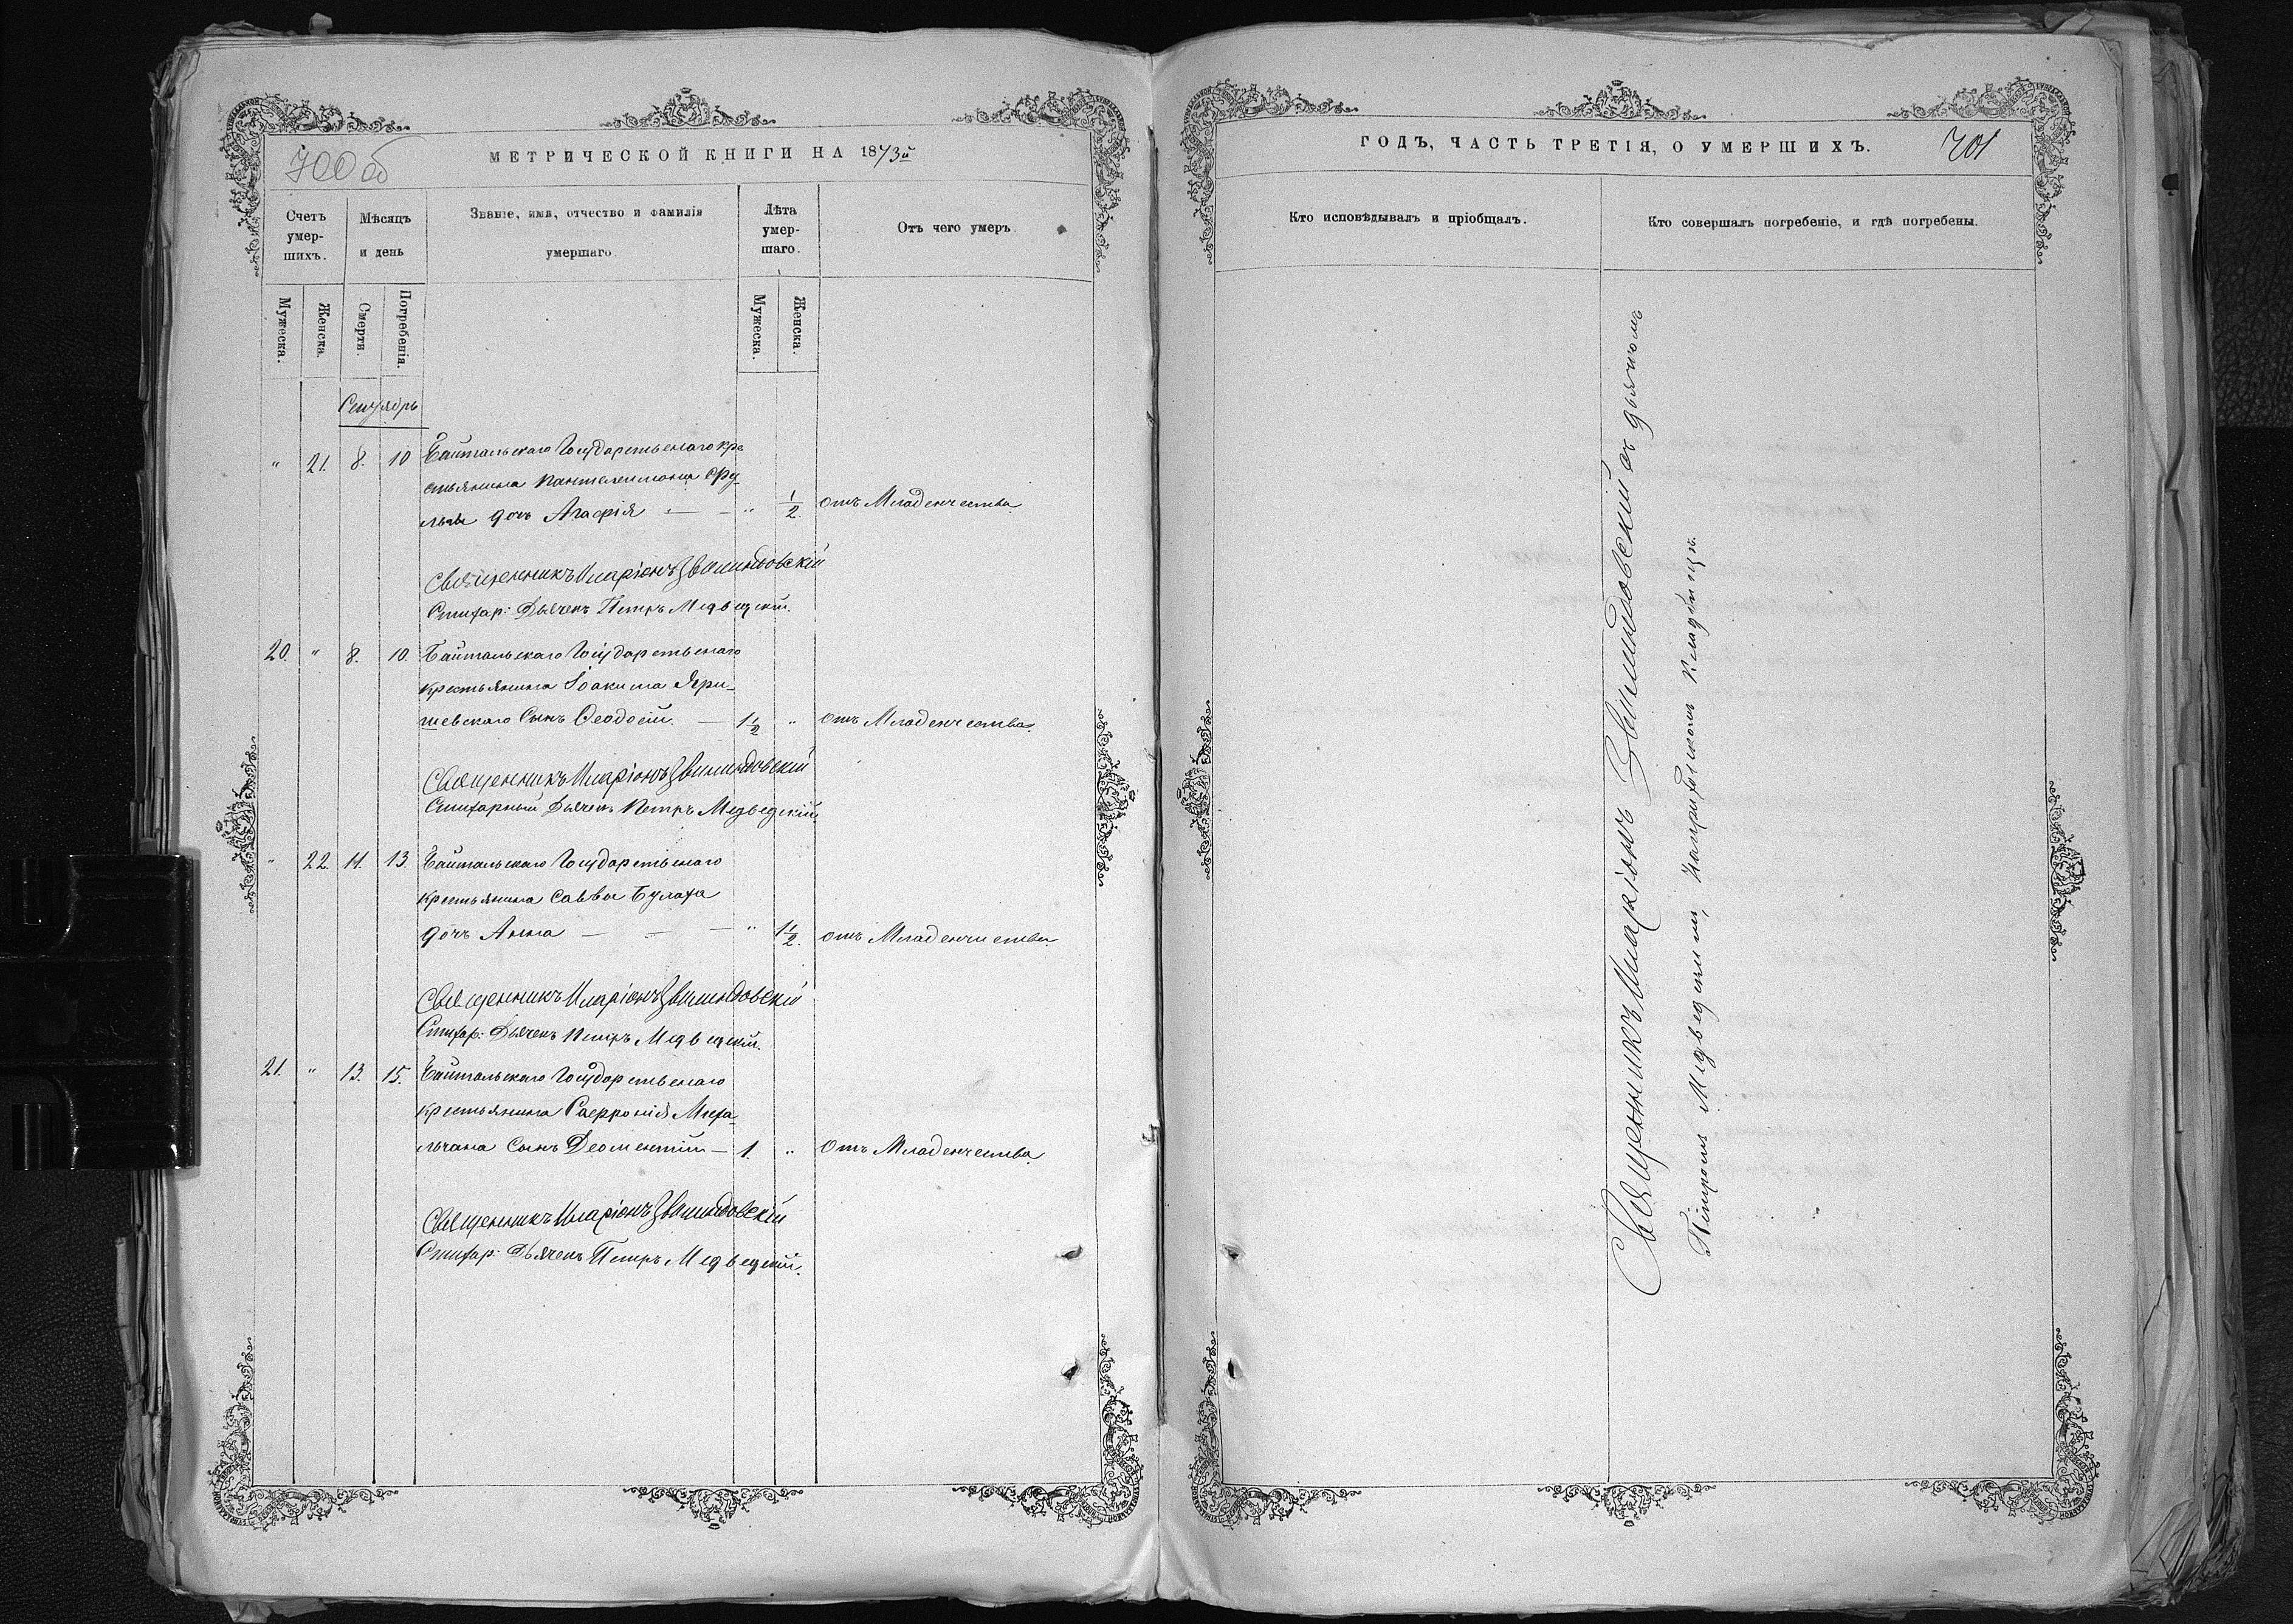 700 об
МЕТРИЧЕСКОЙ КНИГИ НА 1873й
Счетъ умер-шихъ.
Мѣсяцъ и день
Званіе, имя, отчество и фамилія умершаго.
Лѣта умер-шаго.
Отъ чего умеръ.
Мужеска.
Женска.
Смерти.
Погребенія.
Мужеска.
Женска.
Сентябрь
" 21. 8. 10 Байтальскаго Государственаго кре
стьянина Пантелеимона
дочь Агафія — — " 1/2. отъ Младенчества.
Священникъ Иларіонъ
Стихар: Дьячекъ Петръ Медведскій.
20. " 8. 10. Байтальскаго Государственаго
крестьянина Іоакима Яри-
шевскаго Сынъ Ѳеодосій. — 1 1/2 " отъ Младенчества.
Священникъ Иларіонъ
Стихарный Дьячекъ Петръ Медведскій.
" 22. 11. 13. Байтальскаго Государственаго
крестьянина Саввы Булата
дочъ Анна — — — " 1 1/2. отъ Младенчиства.
Священникъ Иларіонъ
Стихар: Дьячекъ Петръ Медведскій.
21. " 13. 15. Байтальскаго Государственаго
крестьянина Сафронія Миха-
льчана Сынъ Деоментій — 1. " Отъ Младенчества.
Священникъ Иларіонъ
Стихар: Дьячекъ Петръ Медведскій.
ГОДЪ, ЧАСТЬ ТРЕТІЯ, О УМЕРШИХЪ.
701
Кто исповѣдывалъ и пріобщалъ.
Кто совершалъ погребеніе, и гдѣ погребены.
Священникъ Иларіонъ съ дьячкомъ
Петромъ Медведскимъ, на приходскомъ кладбищѣ.